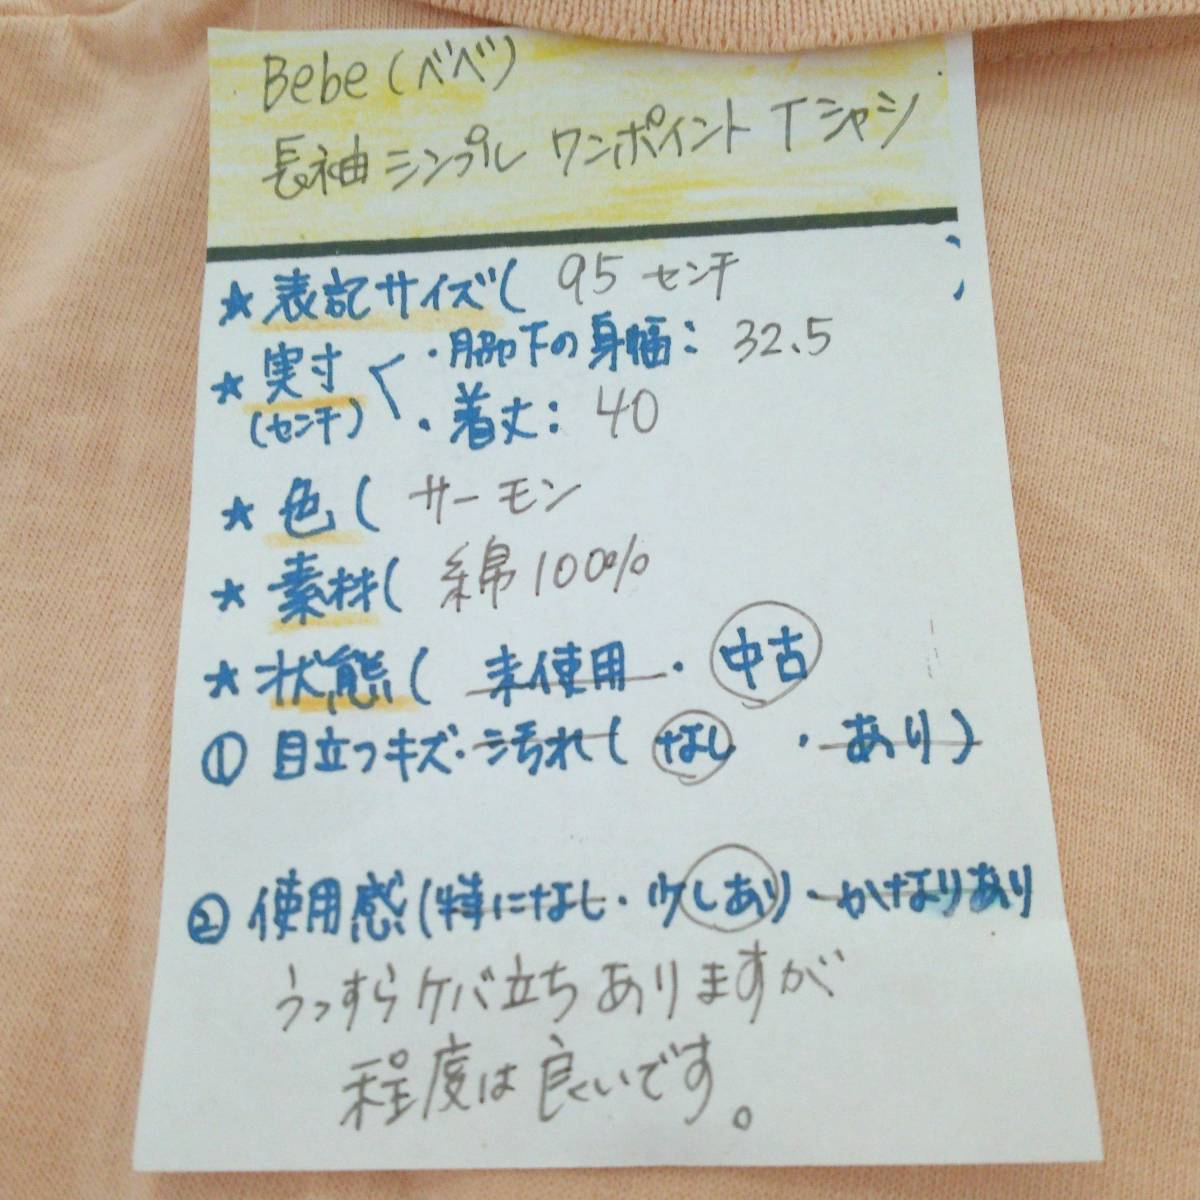 Bebe(べべ)
長袖シンプル ワンポイント Tシャツ
★表記サイズ( 95 センチ
★実寸 ・脇下の身幅: 32.5
(センチ) ・着丈: 40
★色( サーモン
★素材( 綿100%
★状態( 未使用・中古
① 目立つキズ・汚れ( なし ・あり)
② 使用感(特になし・少しあり・かなりあり
うっすらケバ立ちありますが
程度は良いです。